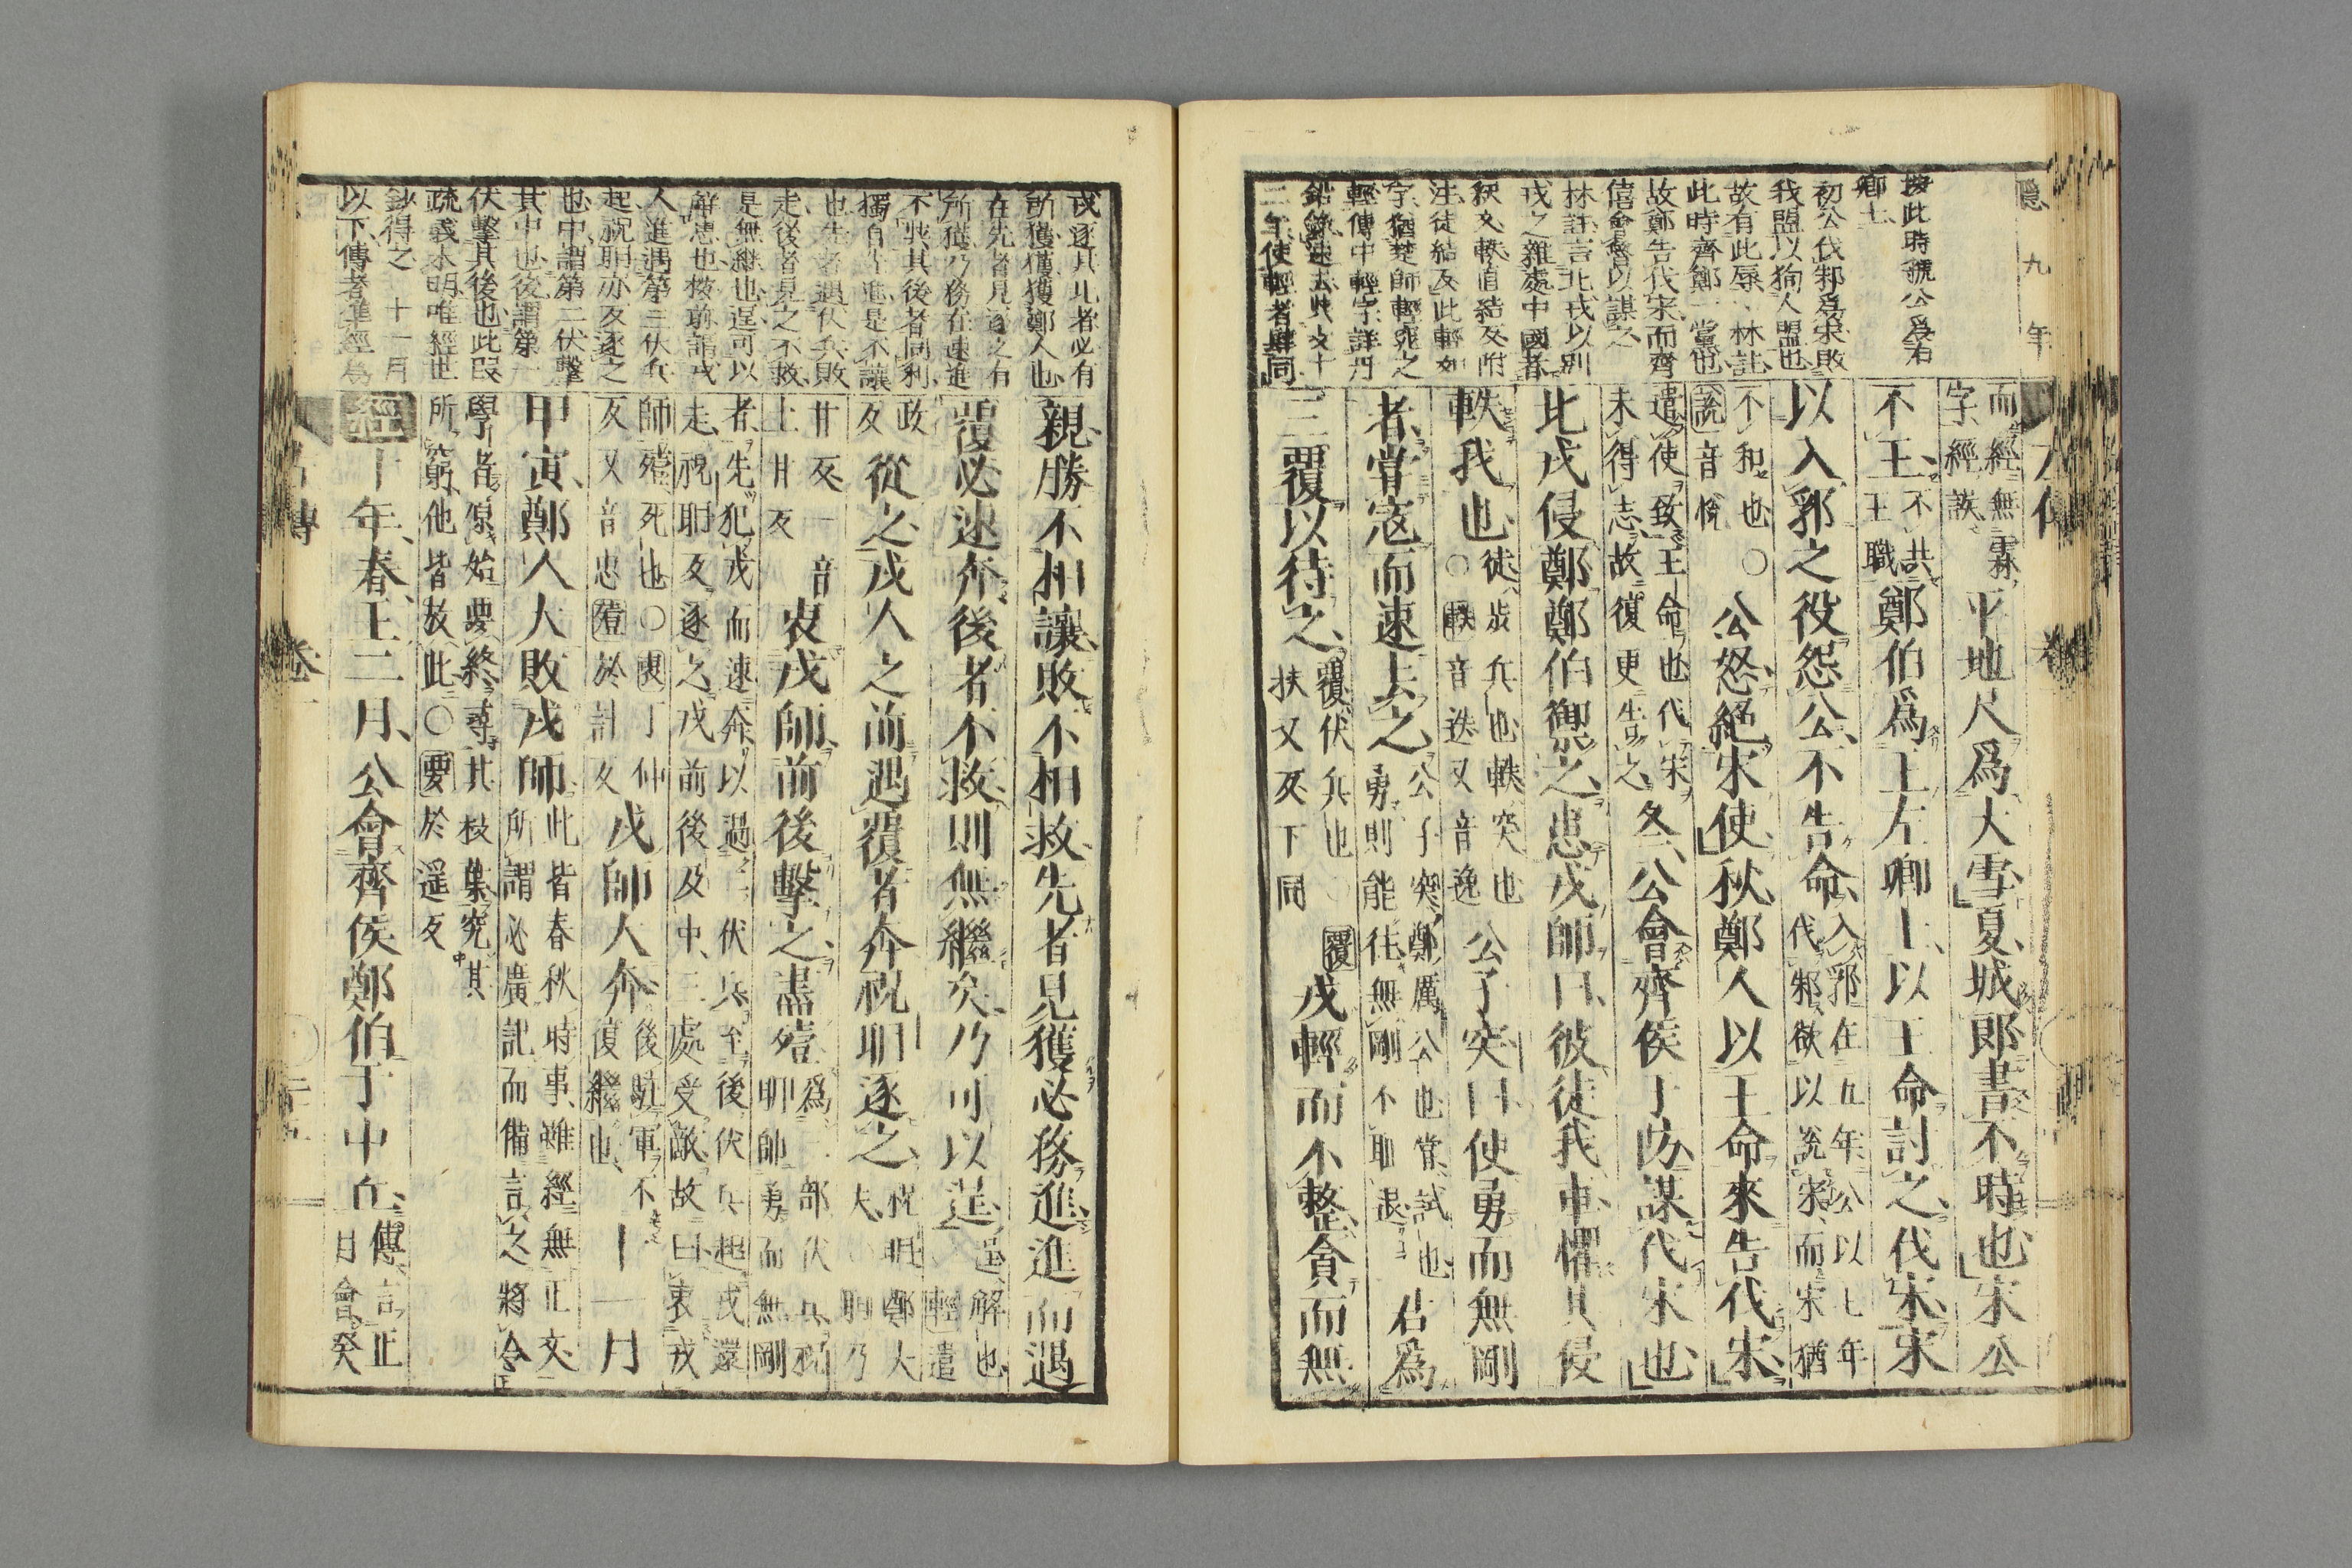 隱九年
而經無霖字經誤平地尺爲大雪夏城郎書不時也宋公
不王不共王職鄭伯爲王左卿士以王命討之伐宋宋
以入郛之役怨公不告命入郛在五年公以七年伐邾欲以說宋而宋猶
不和也○說音悅公怒絕宋使秋鄭人以王命來告伐宋
遣使致王命也伐宋未得志故復更告之冬公會齊侯于防謀伐宋也
北戎侵鄭鄭伯禦之患戎師曰彼徒我車懼其侵
軼我也徒步兵也軼突也○軼音迭又音逸公子突曰使勇而無剛
者嘗寇而速去之公子突鄭厲公也嘗試也勇則能往無剛不恥退君爲
三覆以待之覆伏兵也○覆扶又反下同戎輕而不整貪而無
按此時虢公爲右
卿士
初公伐邾爲宋敗
我盟以狥人盟也
故有此辱林註
此時齊鄭一黨也
故鄭告伐宋而齊
僖會魯以謀之
林註言北戎以別
戎之雜處中國者
釋文軼直結反附
注徒結反此輕如
字猶楚師輕窕之
輕傳中輕字詳丹
鉛錄速去此文十
二年使輕者肆同
親勝不相讓敗不相救先者見獲必務進進而遇
覆必速奔後者不救則無繼矣乃可以逞逞解也○輕遣
政反從之戎人之前遇覆者奔祝聃逐之祝聃鄭大夫○聃乃
甘反一音土甘反衷戎師前後擊之盡殪爲三部伏兵祝聃帥勇而無剛
者先犯戎而速奔以遇二伏兵至後伏兵起戎還走祝聃反逐之戎前後及中三處受敵故曰衷戎
師殪死也○衷丁仲反又音忠殪於計反戎師大奔後駐軍不復繼也十一月
甲寅鄭人大敗戎師此皆春秋時事雖經無正文所謂必廣記而備言之將令
學者原始要終尋其枝葉究其所窮他皆放此○要於遥反
經十年春王二月公會齊侯鄭伯于中丘傳言正月會癸
戎逐其北者必有
所獲獲獲鄭人也
在先者見逐之有
所獲乃務在速進
不與其後者同利
獨自先進是不讓
也先者遇伏兵敗
走後者見之不救
是無繼也逞可以
解患也按前謂戎
人進遇第三伏兵
起祝聃亦反逐之
也中謂第二伏擊
其中也後謂第一
伏擊其後也此段
疏義不明唯經世
鈔得之 十一月
以下傳者準經爲
左傳 卷一